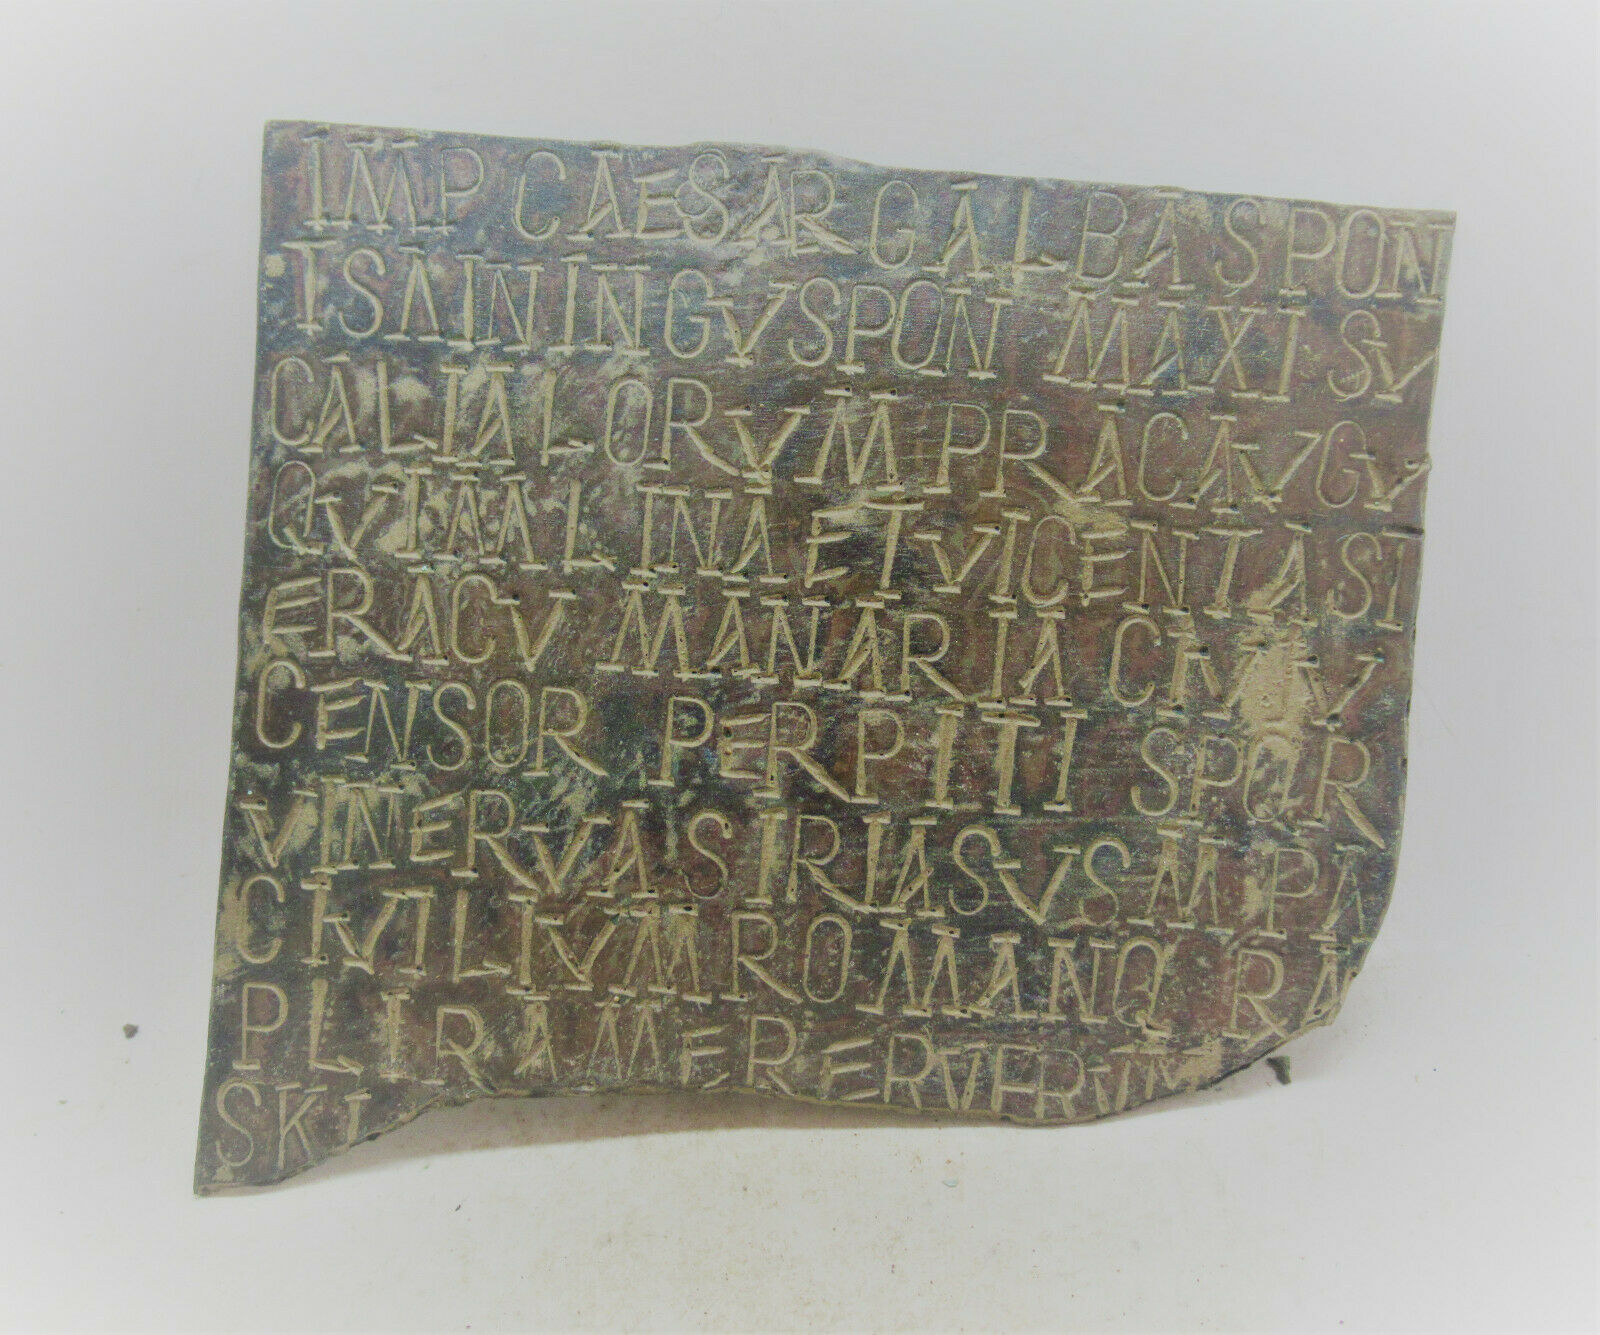 IMP CAESAR GALBA SPON
TSAININGVSPON MAXI SV
CALIALORVMPRACAVGV
QVIMLINAETVICENTASI
ERACV MANARIACRVV
CENSOR PERPITI SPOR
VINERVASIRIASVSMPA
CIVILIVMROMANQ RA
PLIRAMERERVERVM
SKI